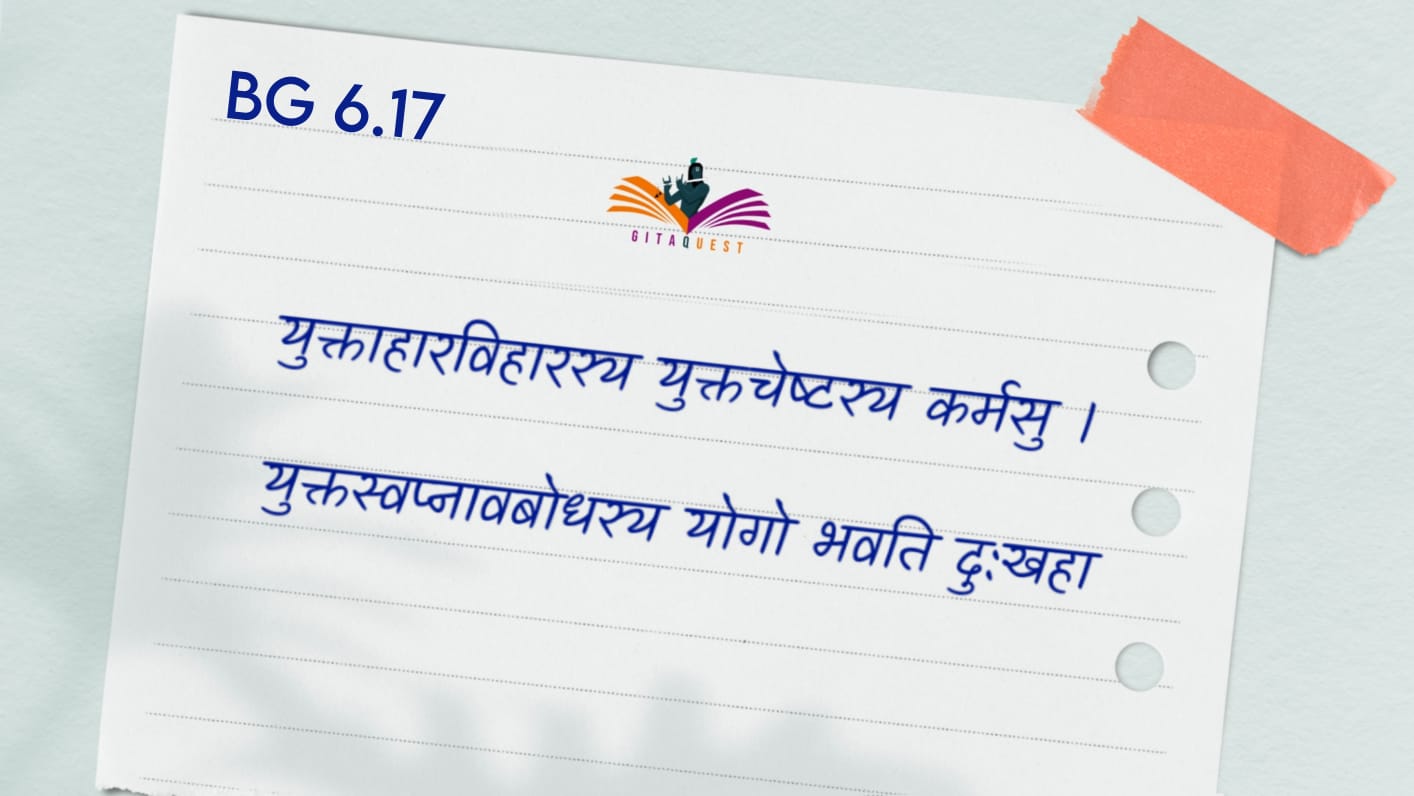 BG 6.17
GITAQUEST
युक्ताहारविहारस्य युक्तचेष्टस्य कर्मसु ।
युक्तस्वप्नावबोधस्य योगो भवति दु:खहा